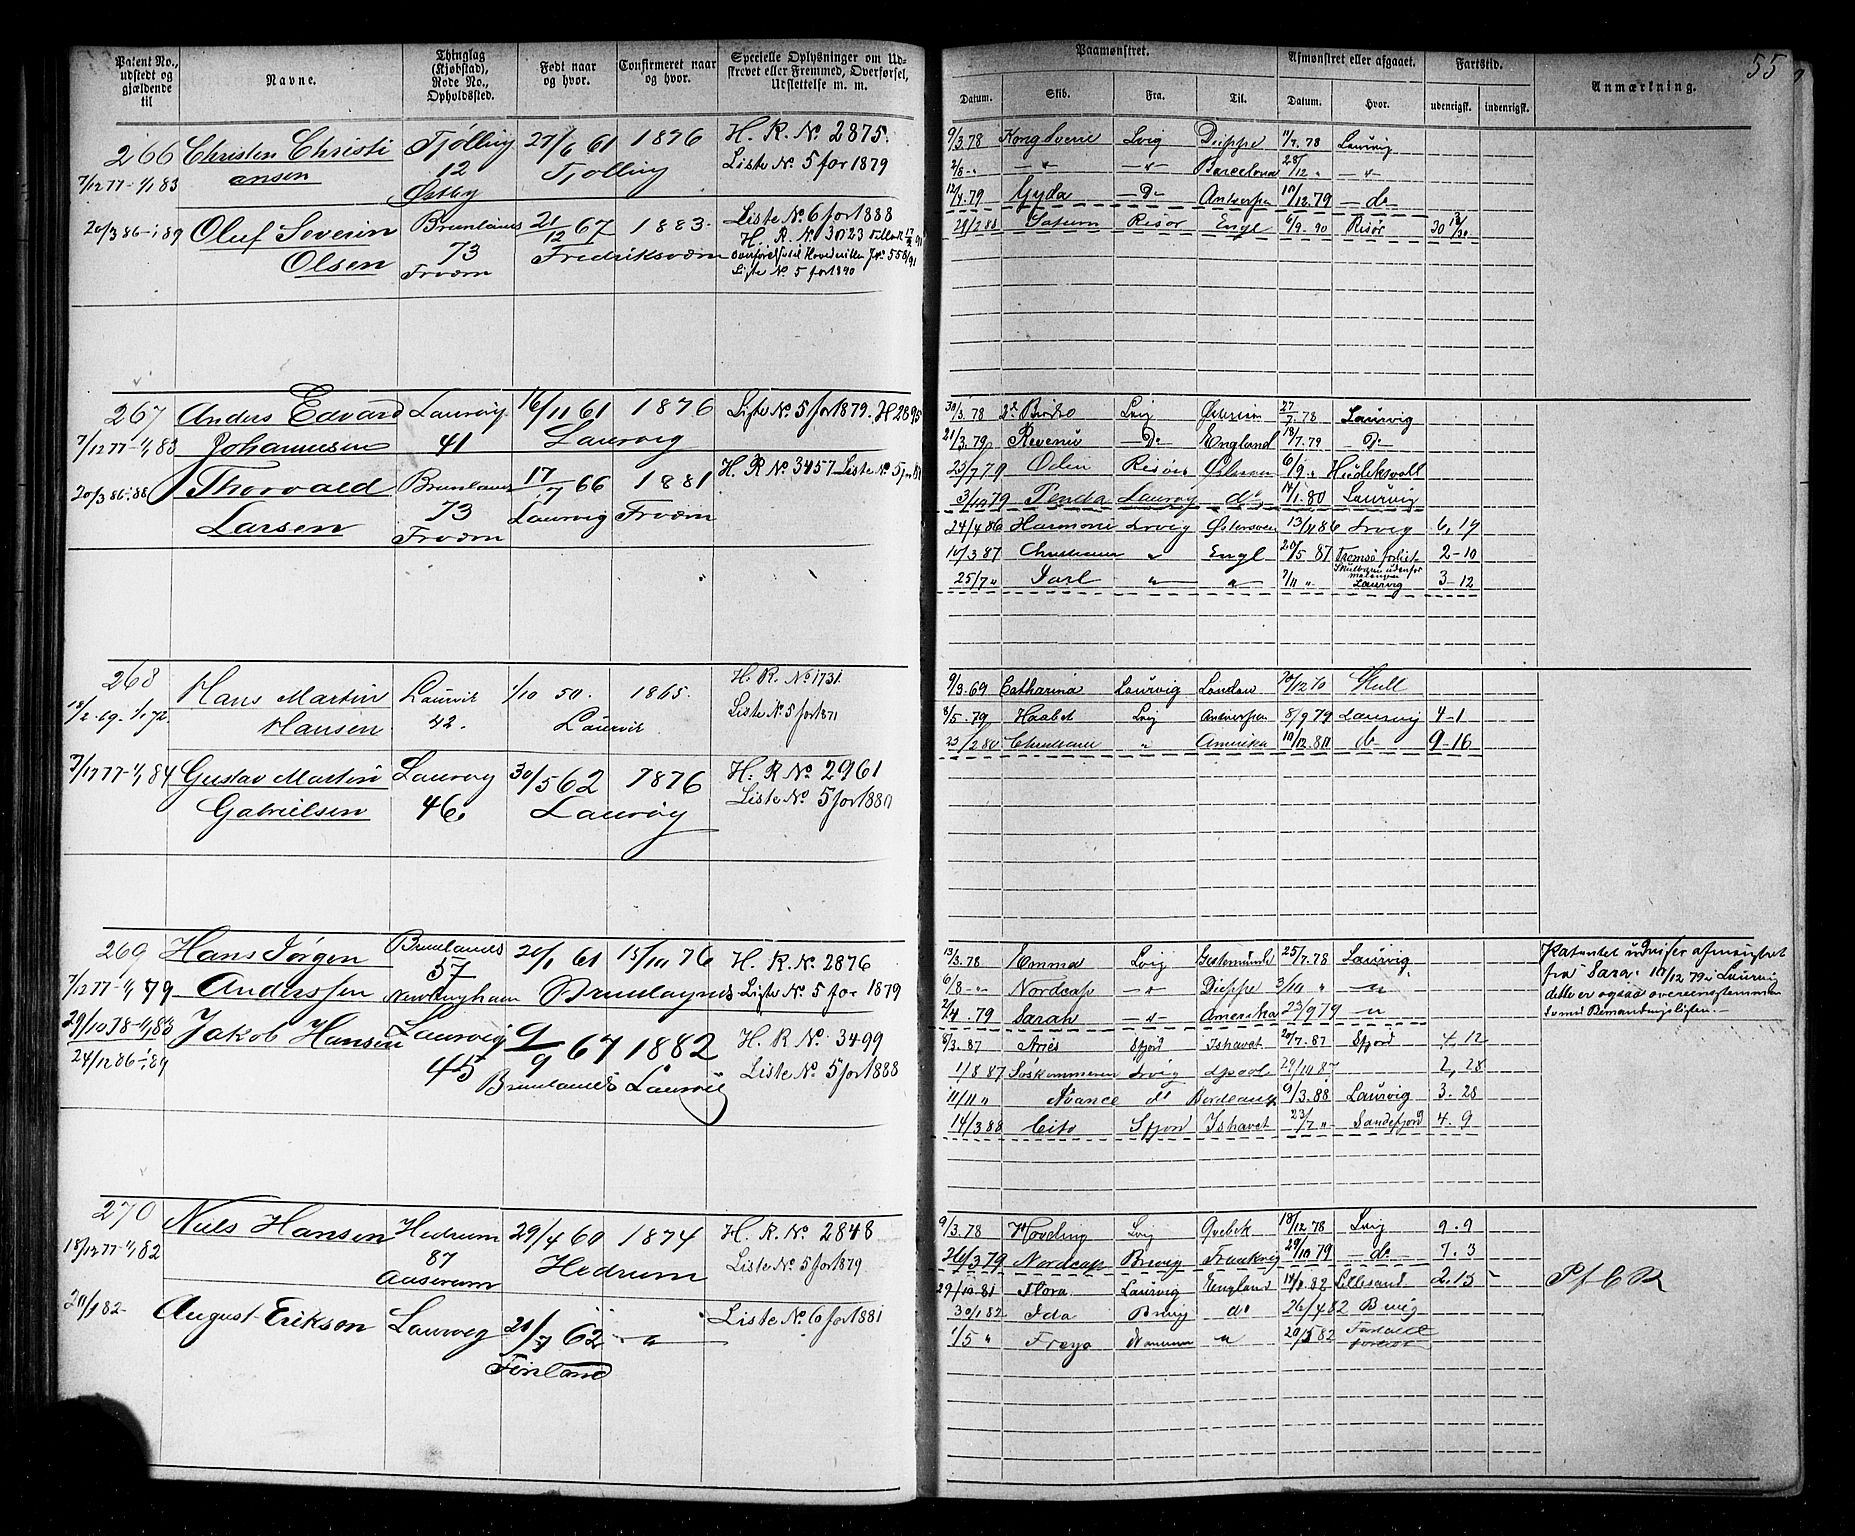 55
Patent No., udstedt og gjældende til
Navne.
Thinglag (Kjøbstad), Rode No., Opholdssted.
Født naar og hvor.
Confirmeret naar og hvor.
Specielle Oplysninger om Udskrevet eller Fremmed, Overførsel, Udslettelse m. m.
Paamønstret.
Afmønstret eller afgaaet.
Fartstid.
Anmærkning.
Datum. Skib. Fra. Til. Datum. Hvor. udenrigsk. indenrigsk.
266 Christen Christi Tjølling 27/6 61 1876 H. R. No 2875.
7/12 77 - 1/1 83 ansen 12 Tjølling Liste No 5 for 1879
Østby
20/3 86 - 1/1 89 Oluf Severin Brunlanes 21/12 67 1883. Liste No 6 for 1888
Olsen 73 Fredriksværn H. R. No 3023
Frværn Liste No 5 for 1890
9/3.78 Kong Sverre Lvig Dieppe 11/7.78 Laurvig
2/8 - " - - " - Barcelona 28/12 " - " -
12/4.79 Gyda - D - Antwerpen 10/12.79 - do
29/2 88 Saturn Risør Engl 6/9.90 Risør 30
267 Anders Edvard Laurvig 16/11 61 1876 Liste No 5 for 1879. H 2895
7/12 77 - 1/1 83 Johannesen 41 Laurvig
20/3 86 - 1/1 88 Thorvald Brunlanes 17/7 66 1881 H. R No 3457 Liste No 5
Larsen 73 Laurvig Frværn
Frværn
30/3.78 Lvig 27/7.78 Laurvig
21/3.79 Revenu - D - England 18/7.79 - D -
23/7 79 Odin Risør 6/9 " Hudiksvall
3/10 79 Penda Laurvig do 14/1.80 Laurvig
24/4 86 Harmoni Lrvig Østersøen 13/11 86 Lrvig 6, 19
10/3 87 " Engl 20/5 87 Tromsø forlist 2-10
25/7 " Jarl " " 7/11 " Laurvig 3-12
268 Hans Martin Laurvik 1/10 50. 1865. H. R. No 1731.
18/2.69 - 1/1 72. Hansen 42. Laurvik Liste No 5 for 1871
7/12 77 - 1/1 84 Gustav Martin Laurvig 30/5 62 1876 H. R No 2961
Gabrielsen 46. Laurvig Liste No 5 for 1880
9/3.69 Catharina Laurvig London Hull
8/5.79 Haabet Lvig Antwerpen 8/9 79 Laurvig 4-1
23/2 80 Christiane " Amerika 10/12.80 do 9-16
269 Hans Jørgen Brunlanes 20/1 61 15/10 76 H. R. No 2876
7/12 77 - 1/1 79 Anderssen 57 Brunlagnes Liste No 5 for 1879
29/10.78 - 1/1 83 Jakob Hansen Laurvig 9/9 67 1882 H. R No 3499
24/12 86 - 1/1 89 45 Brunlanes Laurvig Liste No 5 for 1888
13/3.78 Emma Lvig Gestemünde 25/7.78 Laurvig
6/8 - " Nordcap - " - Dieppe 3/10 " - " -
2/4.79 Sarah - " - Amerika 23/9 79 - "
8/3.87 Aries Sfjord Ishavet 20/7.87 Sfjord 4, 12
1/8 87 Søskummeren Lrvig 29/10 87 2, 28
11/11 " Avance do Bordeaux 9/3.88 Laurvig 3.28
14/3 88 Cito Sfjord Ishavet 23/7 " Sandefjord 4.9
Patentet udviser afmynstret
fra Sara 10/12 79 i Laurvig
dette er ogsaa overeenstemmen
de med Bemandingslisten. -
270 Niels Hansen Hedrum 29/4 60 1874 H. R. No 2848
18/12 77 - 1/1 82 87 Hedrum Liste No 5 for 1879
20/1 82 - August Erikson Laurvig 62 - " - Liste No 6 for 1881
Finland
9/3.78 Høvding Lvig Qvebek 18/12 78 Lvig 9.9
26/3 79 Nordcap Brevig 29/10 79 - do 7.3
29/10.81 Flora Laurvig England 14/1.82 Lillesand 2.15
30/1 82 Ida Brevig do 26/4 82 Brevig
1/5 " Freya " 20/5 82